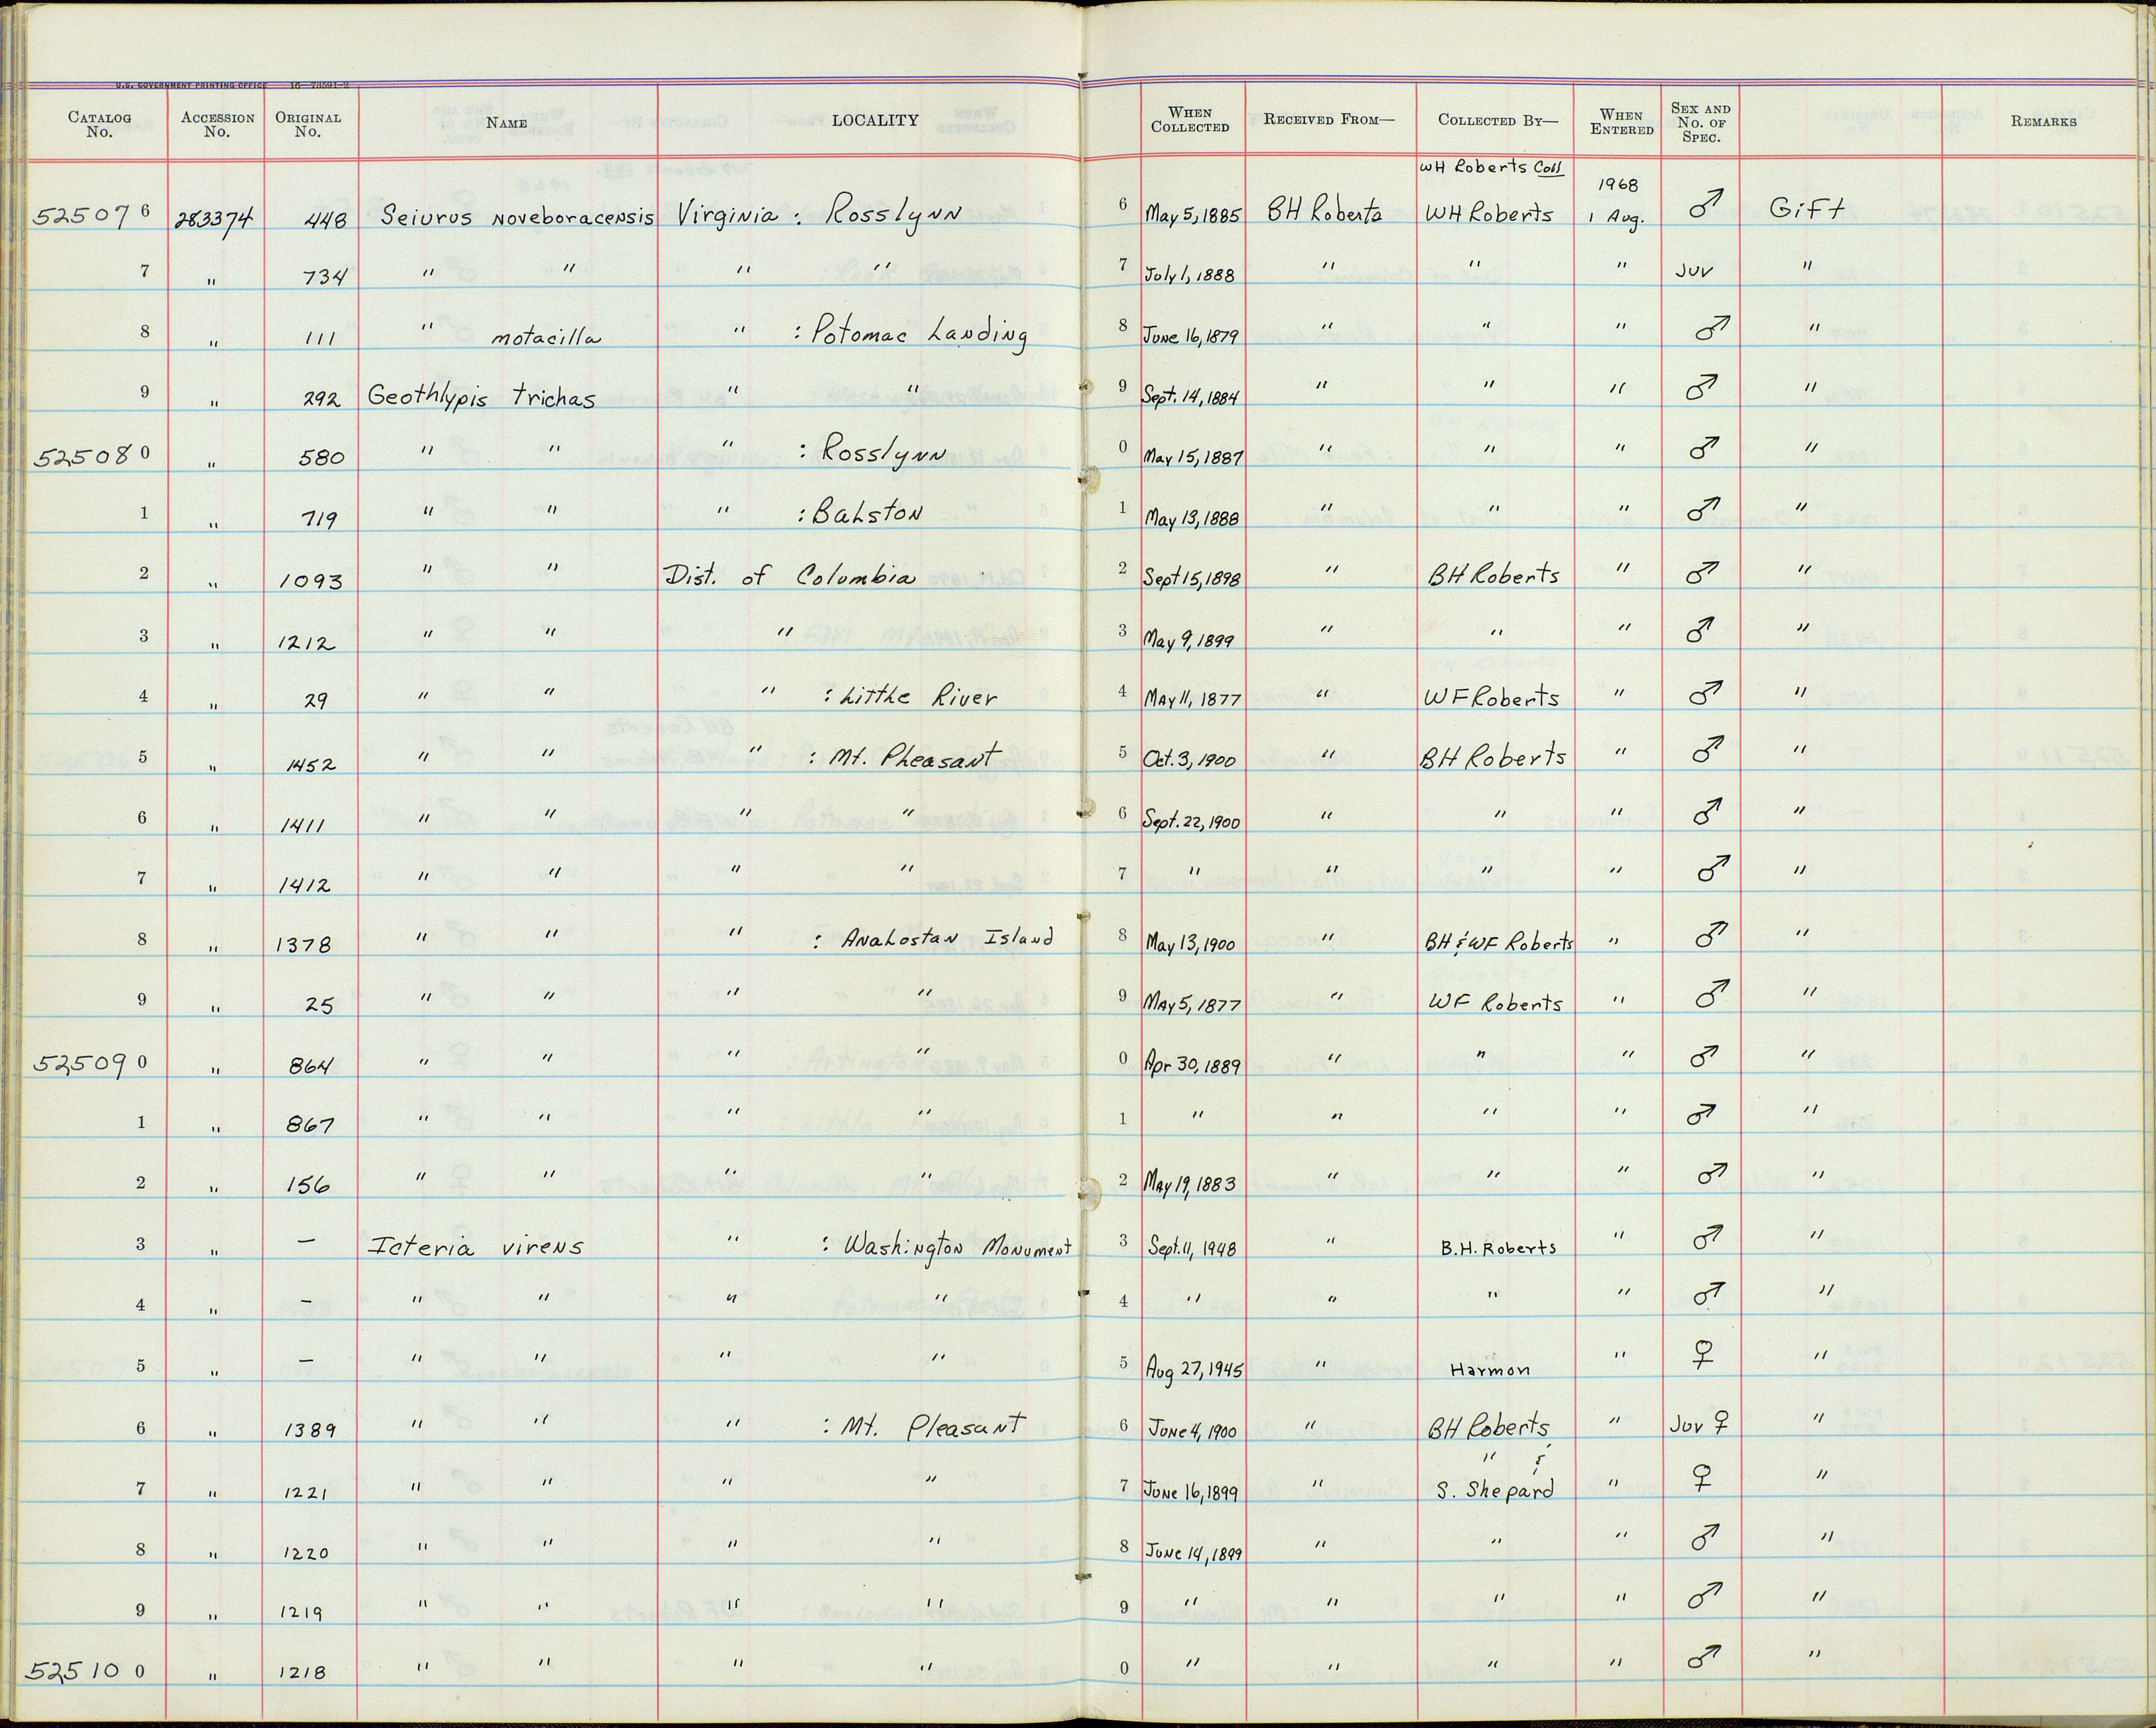 U.S. GOVERNMENT PRINTING OFFICE 16—73591-2
CATALOG No. ACCESSION No. ORIGINAL No. NAME LOCALITY WHEN COLLECTED RECEIVED FROM— COLLECTED BY— WHEN ENTERED SEX AND No. OF SPEC. REMARKS
WH Roberts Coll
525076 283374 448 Seiurus noveboracensis Virginia : Rosslynn 6 May 5, 1885 BH Roberts WH Roberts 1968 1 Aug. ♂ Gift
7 " 734 " " " " 7 July 1, 1888 " " " Juv "
8 " 111 " motacilla " : Potomac Landing 8 June 16, 1879 " " " ♂ "
9 " 292 Geothlypis trichas " " 9 Sept. 14, 1884 " " " ♂ "
525080 " 580 " " " : Rosslynn 0 May 15, 1887 " " " ♂ "
1 " 719 " " " : Balston 1 May 13, 1888 " " " ♂ "
2 " 1093 " " Dist. of Columbia 2 Sept 15, 1898 " BH Roberts " ♂ "
3 " 1212 " " " 3 May 9, 1899 " " " ♂ "
4 " 29 " " " : Little River 4 May 11, 1877 " WF Roberts " ♂ "
5 " 1452 " " " : Mt. Pleasant 5 Oct. 3, 1900 " BH Roberts " ♂ "
6 " 1411 " " " " 6 Sept. 22, 1900 " " " ♂ "
7 " 1412 " " " " 7 " " " " ♂ "
8 " 1378 " " " : Analostan Island 8 May 13, 1900 " BH & WF Roberts " ♂ "
9 " 25 " " " " 9 May 5, 1877 " WF Roberts " ♂ "
525090 " 864 " " " " 0 Apr 30, 1889 " " " ♂ "
1 " 867 " " " " 1 " " " " ♂ "
2 " 156 " " " " 2 May 19, 1883 " " " ♂ "
3 " — Icteria virens " : Washington Monument 3 Sept. 11, 1948 " B.H. Roberts " ♂ "
4 " — " " " " 4 " " " " ♂ "
5 " — " " " " 5 Aug 27, 1945 " Harmon " ♀ "
6 " 1389 " " " : Mt. Pleasant 6 June 4, 1900 " BH Roberts " Juv ♀ "
7 " 1221 " " " " 7 June 16, 1899 " " & S. Shepard " ♀ "
8 " 1220 " " " " 8 June 14, 1899 " " " ♂ "
9 " 1219 " " " " 9 " " " " ♂ "
525100 " 1218 " " " " 0 " " " " ♂ "